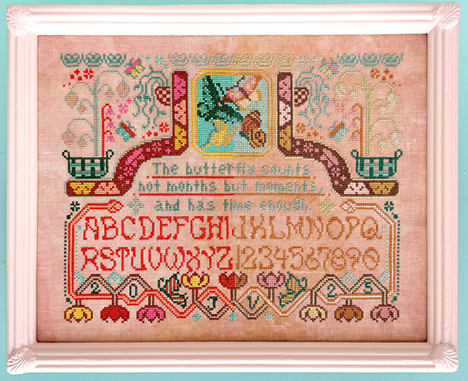 The butterfly counts
not months but moments,
and has time enough.
ABCDEFGHIJKLMNOPQ
RSTUVWXYZ 1234567890
20 J V 25